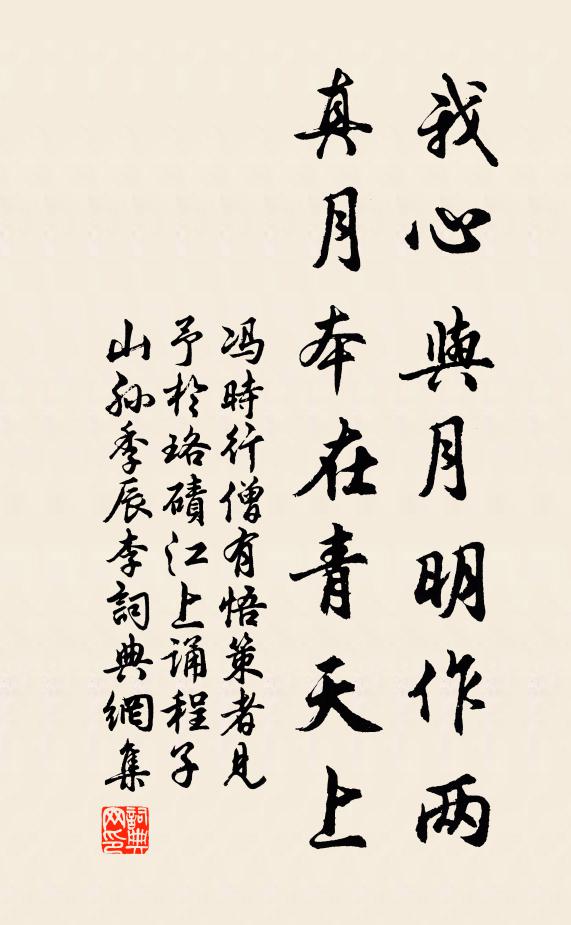 我心與月明作两
真月本在青天上
冯時行僧有悟策者見
予於珞磧江上誦程子
山孙季辰李詞典網集
詞典網印